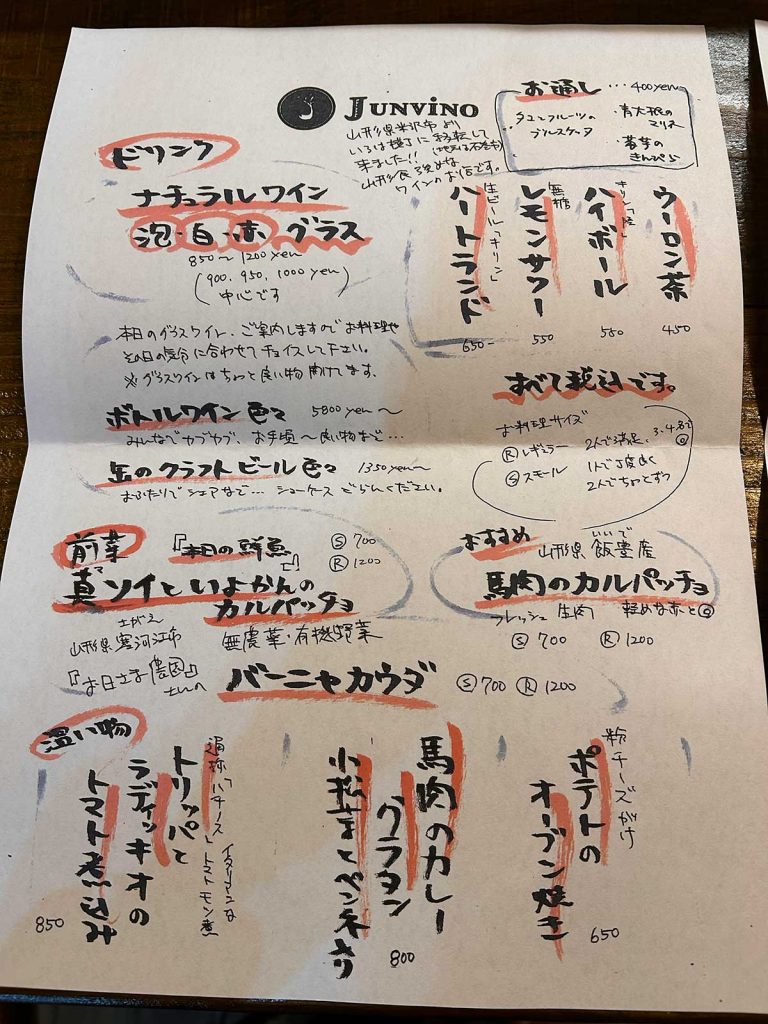 JUNVINO
山形県米沢市より
いろは横丁に移転して
来ました!!(地元は石巻市)
山形民強めな
ワインのお店です。
お通し…400yen
ブルスケッタ
・青大根の
マリネ
きんぴら
ドリンク
ナチュラルワイン
泡・白・赤 グラス
850〜1200yen
(900, 950, 1000yen
中心です)
本日のグラスワイン、ご案内しますのでお料理や
その日の気分に合わせてチョイスして下さい。
※グラスワインはちょっと良い物開けてます。
ボトルワイン色々 5800yen〜
みんなでカブカブ、お手頃〜良い物まで…
缶のクラフトビール色々 1350yen〜
おふたりでシェアなど… ショーケースごらんください。
ウーロン茶
450
キリン「陸」
ハイボール
550
無糖
レモンサワー
550
生ビール「キリン」
ハートランド
650-
すべて税込です。
お料理サイズ
Ⓡレギュラー 2人で満足、3.4名で◎
Ⓢスモール 1人で丁度良く
2人でちょっとずつ
前菜
『本日の鮮魚』
Ⓢ700
Ⓡ1200
真ソイといよかんの
カルパッチョ
おすすめ
山形県 飯豊産
いいで
馬肉のカルパッチョ
フレッシュ 生肉 軽めな赤と◎
Ⓢ700 Ⓡ1200
さがえ
山形県寒河江市
『お日さま農園』
さんの
無農薬・有機野菜
バーニャカウダ Ⓢ700 Ⓡ1200
温い物
粉チーズがけ
ポテトの
オーブン焼き
650
馬肉のカレー
グラタン
小松まてペンネ入り
800
通称「ハチノス」 イタリアンな
トマトモツ煮
トリッパと
ラディッキオの
トマト煮込み
850